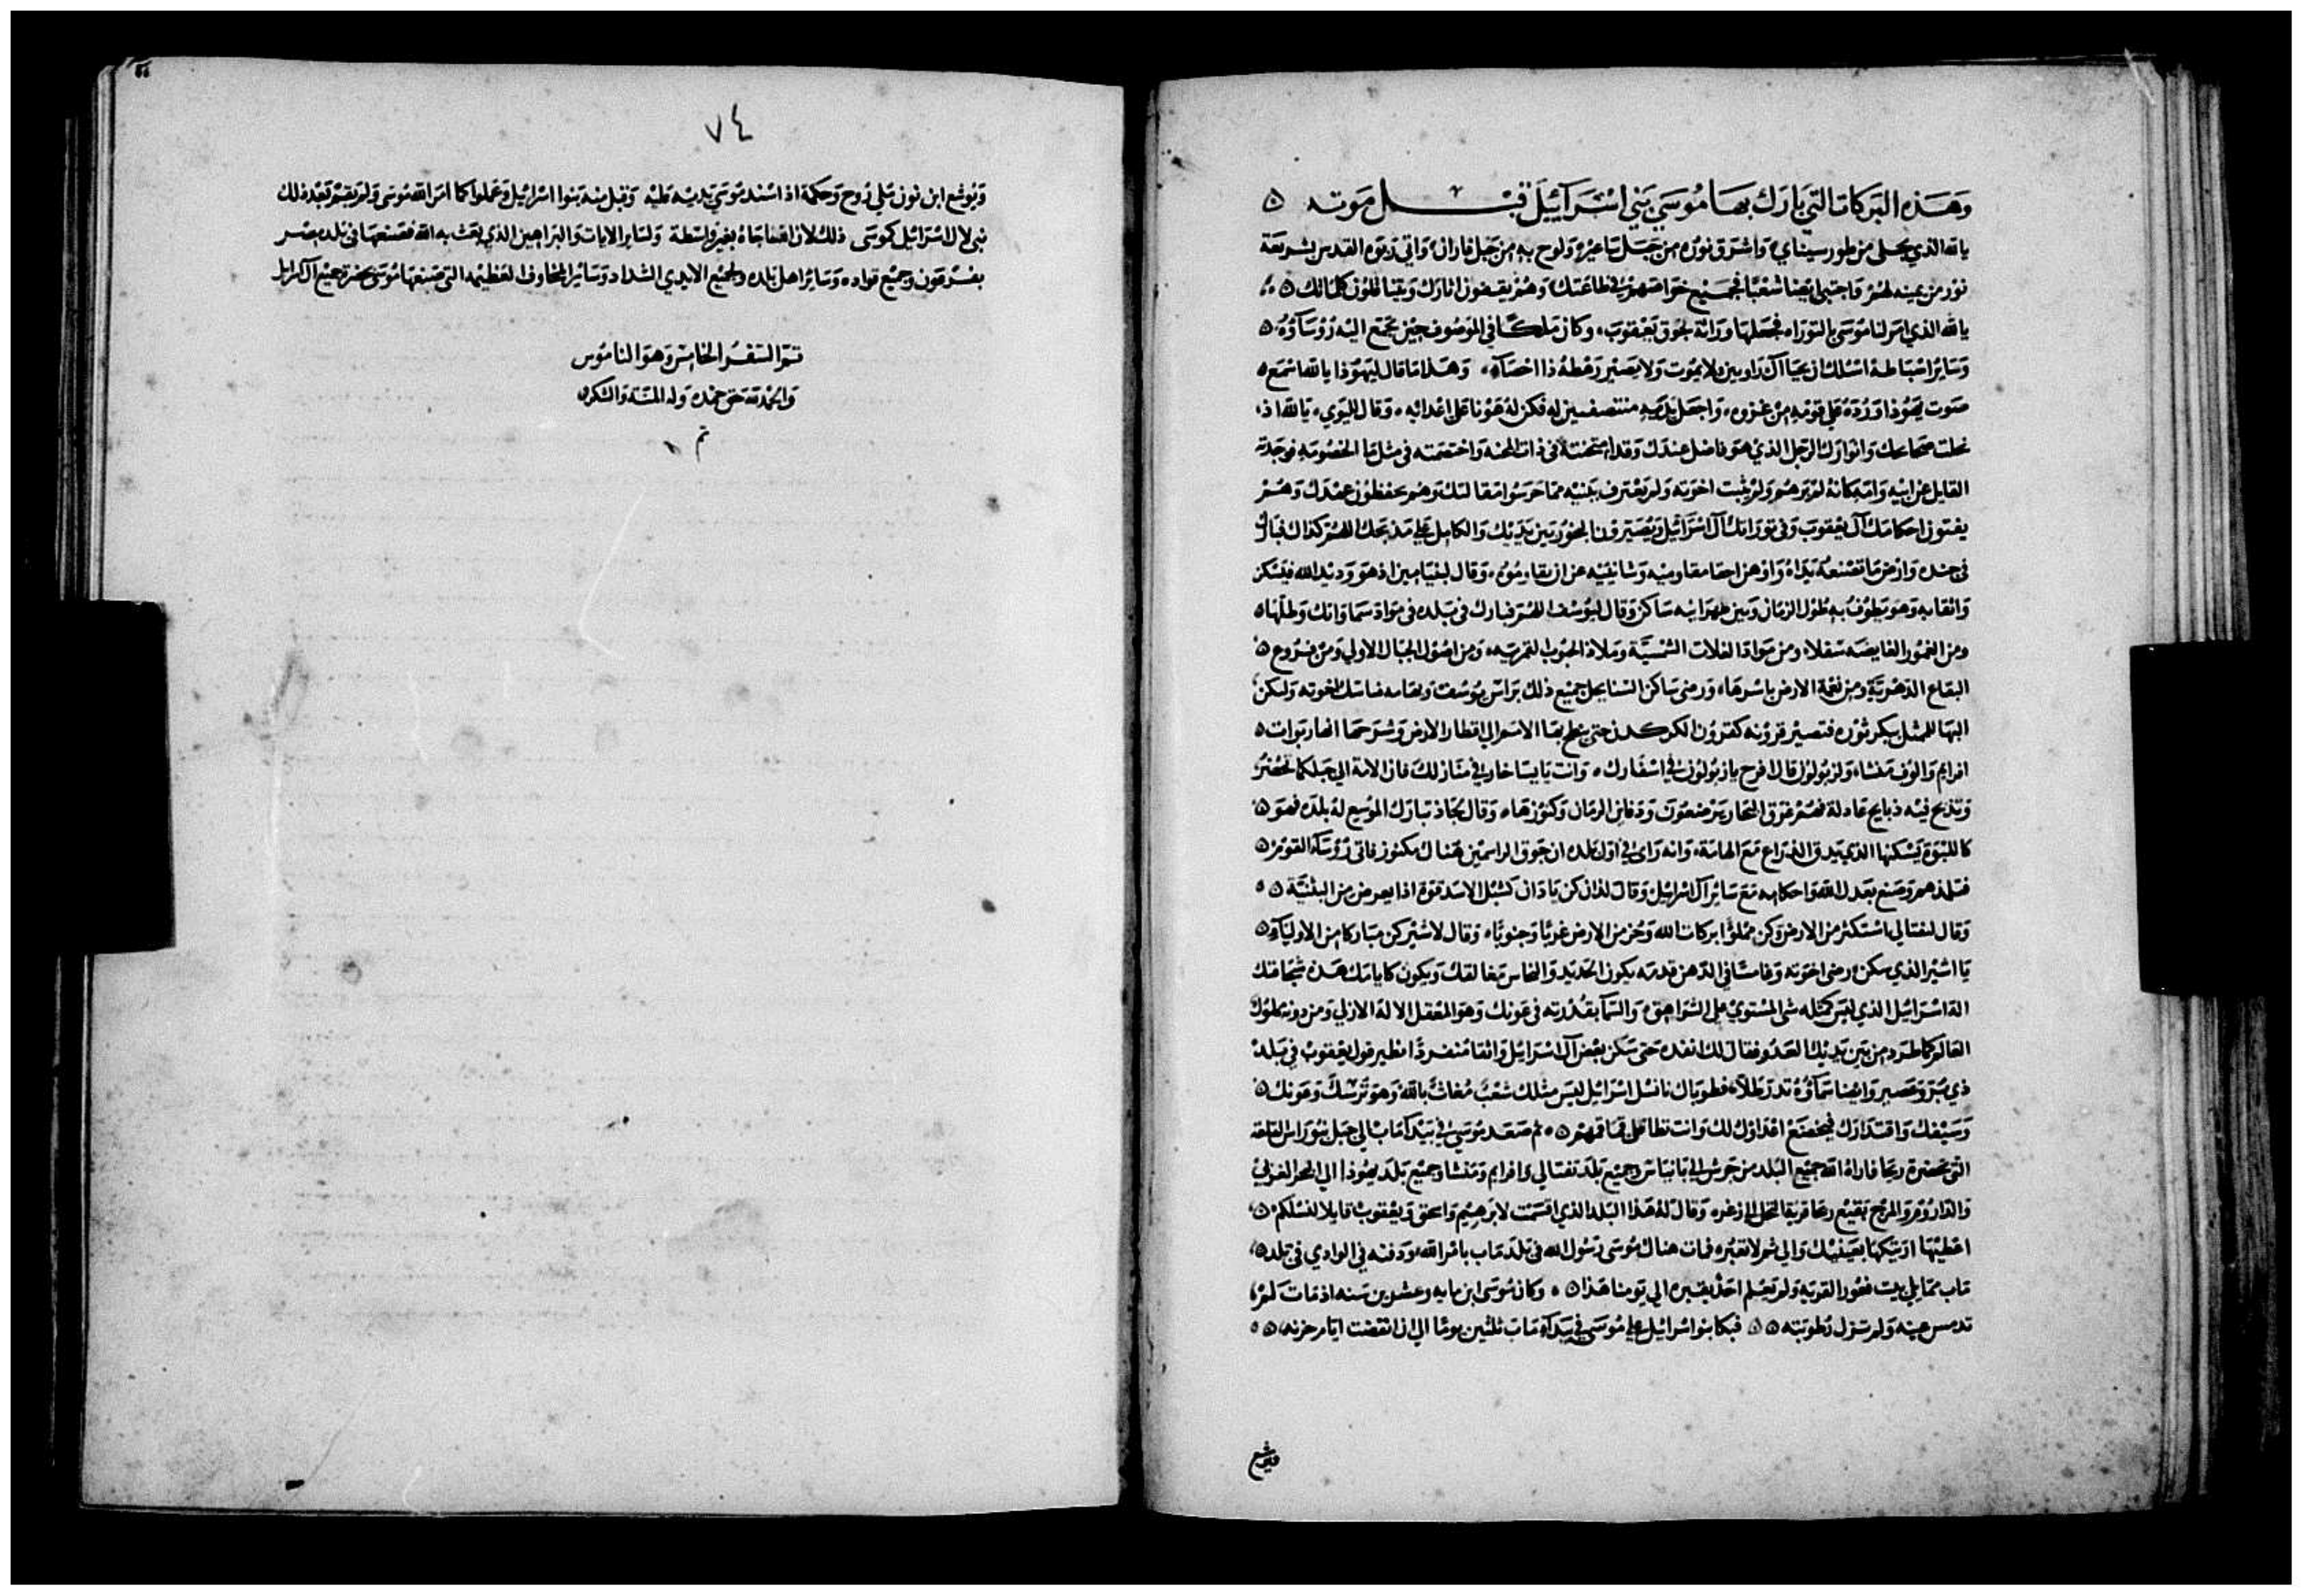 وهذه البركات التي بارك بها موسى بني اسرائيل قبل موته
يا الله الذي تجلى من طور سيناي واشرق نوره من جبل ساعير ولوح به من جبل فاران واتى ربوه القدس بشريعة
نور من يمينه لهم واجتبى ايضا شعبا فجميع خواصهم في طاعتك وهم يقفون اثارك ويتناقلون كلماتك
يا الله الذي امر لنا موسى بالتوراه فجعلها وراثة لجوق يعقوب وكان ملكا في الموصوف حين تجمع اليه رؤساؤه
وسائر اسباطه اسئلك ان يحيا آل راوبين ولا يموت ولا يصير رهطه ذا احصآء وهذا ما قال ليهوذا يا الله اسمع
صوت يهوذا ورده على قومه من غزوه واجعل يديه منتصفين له فكن له عونا على اعدائه وقال لليوي يا الله اذ
الرجل الذي هو فاضل عندك وقد امتحنته في ذات المحنه واختصمته في مثل ما الخصومه فوجدته
القايل عن ابيه وامه كانه لم يرهم ولم يثبت اخوته ولم يعترف ببنيه مما حرسوا مقالتك وهم يحفظون عهدك وهم
يفتون احكامك آل يعقوب وفي توراتك آل اسرائيل ويصيرون البخور بين يديك والكامل على مذبحك اللهم كذاك فبارك
في جنده وارض ما تصنعه يداه واوهن احقا مقاوميه وشانئيه عن ان يقاوموه وقال لبنيامين اذ هو وديد الله فليسكن
واثقا به وهو يطوف به طول الزمان وبين ظهرانيه ساكن وقال ليوسف اللهم فبارك في بلده في مواد سماواتك وطلها
ومن الغمور الغايضه سفلا ومن مواد الغلات الشمسية وملاذ الحبوب القمريه ومن اصول الجبال الاولى ومن فروع
البقاع الدهرية ومن نعمة الارض باسرها ورضى ساكن السنا يحل جميع ذلك براس يوسف وبهامه ناسك اخوته وليكن
البها الممثل ببكر ثوره فتصير قرونه كقرون الكركدن حتى ينطح بها الامم الى اقطار الارض وشرحهما انها ربوات
افرايم والوف منشا ولزبولون قال افرح يا زبولون في اسفارك وانت يا يساخار في منازلك فان الامة الى جبلك تحضر
وتذبح فيه ذبايح عادلة فهم غرق البحار يرضعون ودفاين الرمال وكنوزها وقال لجاد تبارك الموسع له بلده فهو
كاللبوة يسكنها الذي يمزق الذراع مع الهامة وانه راى في اول بلده ان جوق الراسمين هناك مكنوز فاتى رؤسآء القوم
وصنع بعدل الله واحكامه مع سائر آل اسرائيل وقال لدان كن يا دان كشبل الاسد قوة اذا يعرض من البثنية
وقال لنفتالي استكثر من الارض وكن مملؤا بركات الله وحز من الارض غربا وجنوبا وقال لاشير كن مباركا من الاوليآء
يا اشير الذي يكن رضى اخوته وغامسا في الدهن قدمه يكون الحديد والنحاس مغالقك ويكون كايامك هذه شجاعتك
اله اسرائيل الذي ليس كمثله شى المستوي على الشواهق والسمآ بقدرته في عونك وهو المعقل الاله الازلي ومن دونه ملوك
العالم كما طرد من بين يديك العدو فقال لك انفده حتى سكن بعض آل اسرائيل واثقا منفردا نظير قول يعقوب في بلد
ذي بر وعصير وايضا سمآؤه تدر طلا فطوباك يا نسل اسرائيل ليس مثلك شعب مغاث بالله وهو ترسك وعونك
وسيفك واقتدارك فيخضع اعداؤك لك وانت تطا على قماقمهم ثم صعد موسى في بيدآ ماب الى جبل نبو راس القلعه
التي بحضرة ريحا فاراه الله جميع البلد من جرش الى بانياس وجميع بلد نفتالي وافرايم ومنشا وجميع بلد يهوذا الى البحر الغربي
والداروم والمرج بقيع ريحا قرية النخل الى زغر وقال له هذا البلد الذي اقسمت لابرهيم واسحق ويعقوب قايلا لنسلكم
اعطيها اريتكها بعينيك والى ثم لا تعبره فمات هناك موسى رسول الله في بلد ماب بامر الله ودفنه في الوادي في بلد
ماب مما يلي بيت فغور القريه ولم يعلم احد بقبره الى يومنا هذا وكان موسى ابن مايه وعشرين سنه اذ مات لم
تدمس عينه ولم تزل رطوبته فبكا بنو اسرائيل على موسى في بيدآء ماب ثلثين يوما الى ان انقضت ايام حزنه
فيوشع
٧٤
ويوشع ابن نون ملي روح وحكمة اذ اسند موسى يديه عليه وقبل منه بنوا اسرائيل وعملوا كما امر الله موسى ولم يقم بعد ذلك
نبي لال اسرائيل كموسى ذلك لان الله ناجاه بغير واسطة ولسائر الايات والبراهين الذي بعث به الله فصنعها في بلد مصر
بفرعون وجميع قواده وسائر اهل بلده ولجميع الايدي الشداد وسائر المخاوف العظيمه التي صنعها موسى بحضرة جميع آل اسرايل
تم السفر الخامس وهو الناموس
والحمد لله حق حمده وله المنة والشكر
تم